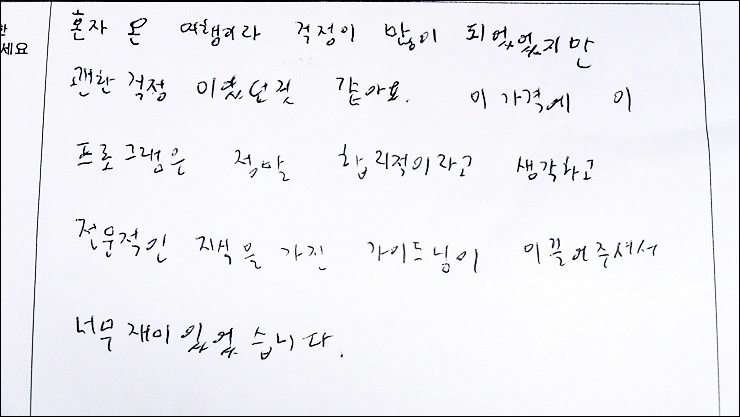 한
세요
혼자 온 여행이라 걱정이 많이 되었었지만
괜한 걱정 이였던것 같아요. 이 가격에 이
프로그램은 정말 합리적이라고 생각하고
전문적인 지식을 가진 가이드님이 이끌어주셔서
너무 재미있었습니다.